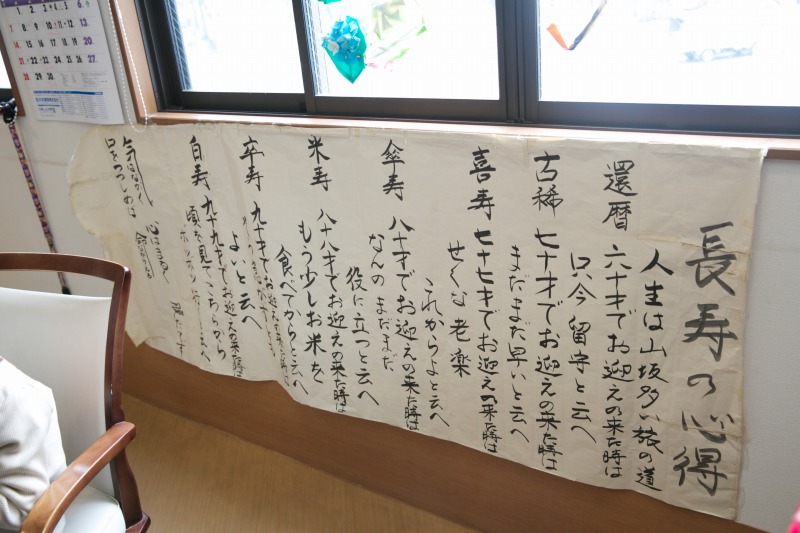 長寿の心得
人生は山坂多い旅の道
還暦 六十才でお迎えの来た時は
只今留守と云へ
古稀 七十才でお迎えの来た時は
まだまだ早いと云へ
喜寿 七十七才でお迎えの来た時は
せくな老楽
これからよと云へ
傘寿 八十才でお迎えの来た時は
なんのまだまだ
役に立つと云へ
米寿 八十八才でお迎えの来た時は
もう少しお米を
食べてからと云へ
卒寿 九十才でお迎えの来た時は
よいと云へ
白寿 九十九才でお迎えの来た時は
頃を見てこちらから
気はながく
口をつつしめば